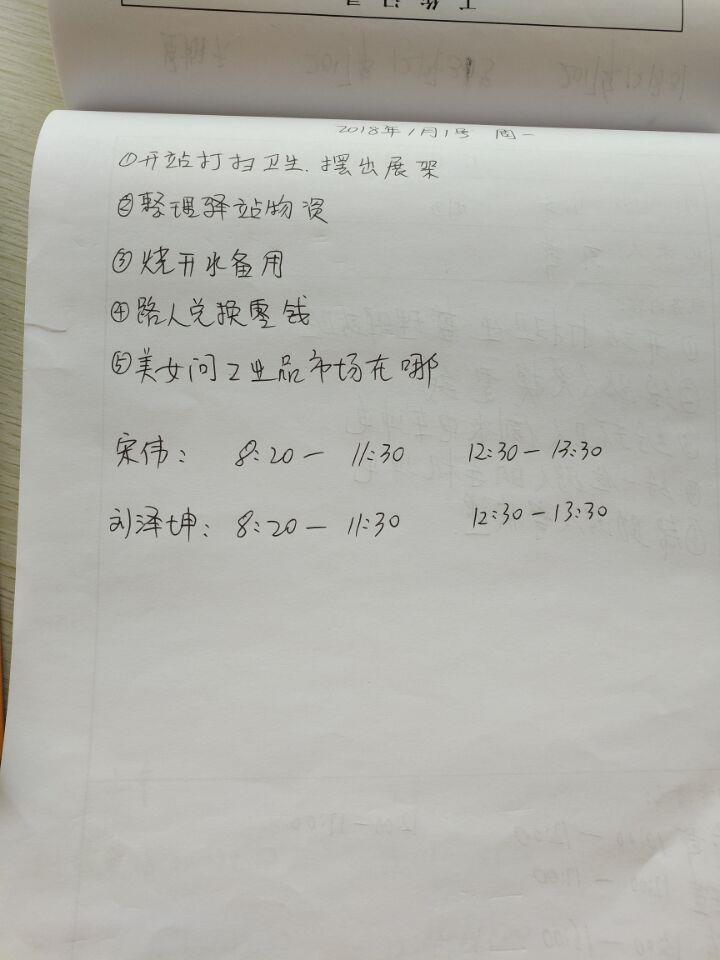 工作记录
2018年1月1号 周一
①开站打扫卫生.摆出展架
②整理驿站物资
③烧开水备用
④路人兑换零钱
⑤美女问工业品市场在哪
宋伟: 8:20— 11:30 12:30—13:30
刘泽坤: 8:20— 11:30 12:30—13:30